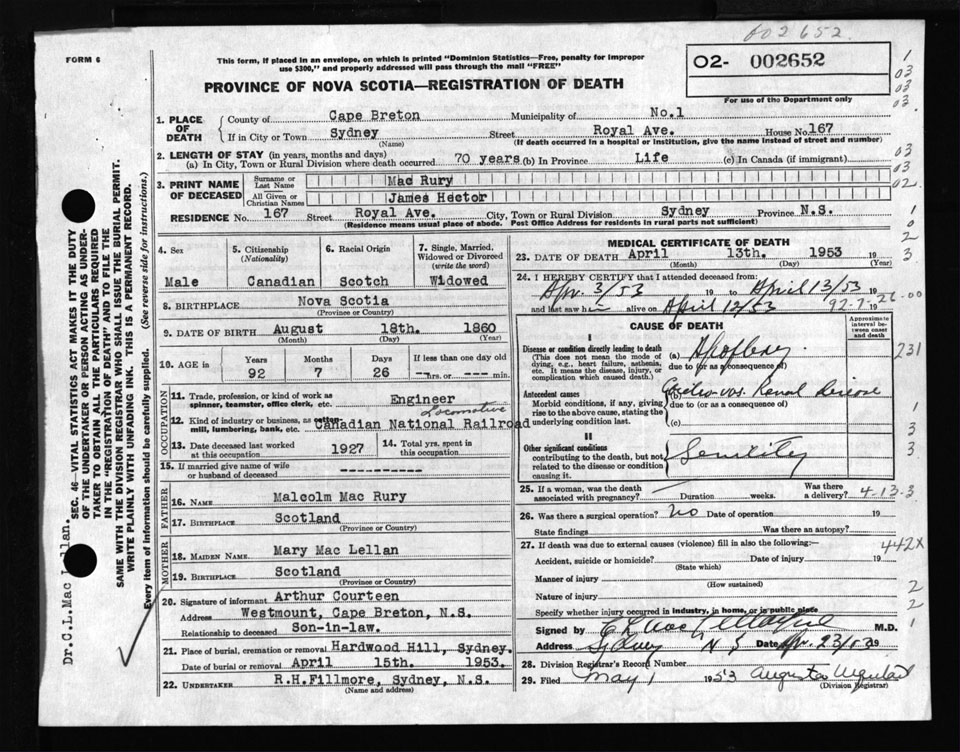 002652
FORM 6
This form, if placed in an envelope, on which is printed "Dominion Statistics—Free, penalty for improper
use $300," and properly addressed will pass through the mail "FREE"
O2- 002652
For use of the Department only
PROVINCE OF NOVA SCOTIA—REGISTRATION OF DEATH
1. PLACE OF DEATH
County of Cape Breton Municipality of No.1
If in City or Town Sydney Street Royal Ave. House No. 167
(Name) (If death occurred in a hospital or institution, give the name instead of street and number)
2. LENGTH OF STAY (in years, months and days)
(a) In City, Town or Rural Division where death occurred 70 years (b) In Province Life (c) In Canada (if immigrant)
3. PRINT NAME OF DECEASED
Surname or Last Name Mac Rury
All Given or Christian Names James Hector
RESIDENCE No. 167 Street Royal Ave. City, Town or Rural Division Sydney Province N.S.
(Residence means usual place of abode. Post Office Address for residents in rural parts not sufficient)
4. Sex
Male
5. Citizenship (Nationality)
Canadian
6. Racial Origin
Scotch
7. Single, Married, Widowed or Divorced (write the word)
Widowed
8. BIRTHPLACE Nova Scotia
(Province or Country)
9. DATE OF BIRTH August 18th. 1860
(Month) (Day) (Year)
10. AGE in
Years Months Days If less than one day old
92 7 26 ---hrs. or --- min.
OCCUPATION
11. Trade, profession, or kind of work as spinner, teamster, office clerk, etc. Engineer
Locomotive
12. Kind of industry or business, as cotton mill, lumbering, bank, etc. Canadian National Railroad
13. Date deceased last worked at this occupation 1927
14. Total yrs. spent in this occupation
15. If married give name of wife or husband of deceased -----------
FATHER
16. NAME Malcolm Mac Rury
17. BIRTHPLACE Scotland
(Province or Country)
MOTHER
18. MAIDEN NAME Mary Mac Lellan
19. BIRTHPLACE Scotland
(Province or Country)
20. Signature of informant Arthur Courteen
Address Westmount, Cape Breton, N.S.
Relationship to deceased Son-in-law.
21. Place of burial, cremation or removal Hardwood Hill, Sydney.
Date of burial or removal April 15th. 1953.
22. UNDERTAKER R.H.Fillmore, Sydney, N.S.
(Name and address)
MEDICAL CERTIFICATE OF DEATH
23. DATE OF DEATH April 13th. 1953
(Month) (Day) (Year)
24. I HEREBY CERTIFY that I attended deceased from:
Apr. 3/53 19 to April 13/53 19
and last saw him alive on April 12/53 19
92-7-26-00
CAUSE OF DEATH
Approximate interval between onset and death
I
Disease or condition directly leading to death
(This does not mean the mode of dying, e.g., heart failure, asthenia, etc. It means the disease, injury, or complication which caused death.)
(a) Apoplexy
due to (or as a consequence of)
Antecedent causes
Morbid conditions, if any, giving rise to the above cause, stating the underlying condition last.
(b) Cardio-vas. Renal Disease
due to (or as a consequence of)
(c)
II
Other significant conditions
contributing to the death, but not related to the disease or condition causing it.
Senility
25. If a woman, was the death associated with pregnancy? Duration weeks. Was there a delivery?
4-13-3
26. Was there a surgical operation? No Date of operation 19
State findings Was there an autopsy?
27. If death was due to external causes (violence) fill in also the following:
442X
Accident, suicide or homicide? Date of injury 19
(State which)
Manner of injury
(How sustained)
Nature of injury
Specify whether injury occurred in industry, in home, or in public place
Signed by M.D.
Address Sydney N S Date Apr. 23/53 19
28. Division Registrar's Record Number
29. Filed May 1 1953 Augusta
(Division Registrar)
1
03
03
03
03
03
02
1
0
2
3
231
1
3
3
2
2
1
SEC. 46—VITAL STATISTICS ACT MAKES IT THE DUTY
OF THE UNDERTAKER OR PERSON ACTING AS UNDER-
TAKER TO OBTAIN ALL THE PARTICULARS REQUIRED
IN THE "REGISTRATION OF DEATH" AND TO FILE THE
SAME WITH THE DIVISION REGISTRAR WHO SHALL ISSUE THE BURIAL PERMIT.
WRITE PLAINLY WITH UNFADING INK. THIS IS A PERMANENT RECORD.
Every item of information should be carefully supplied. (See reverse side for instructions.)
Dr.C.L.Mac Lellan.